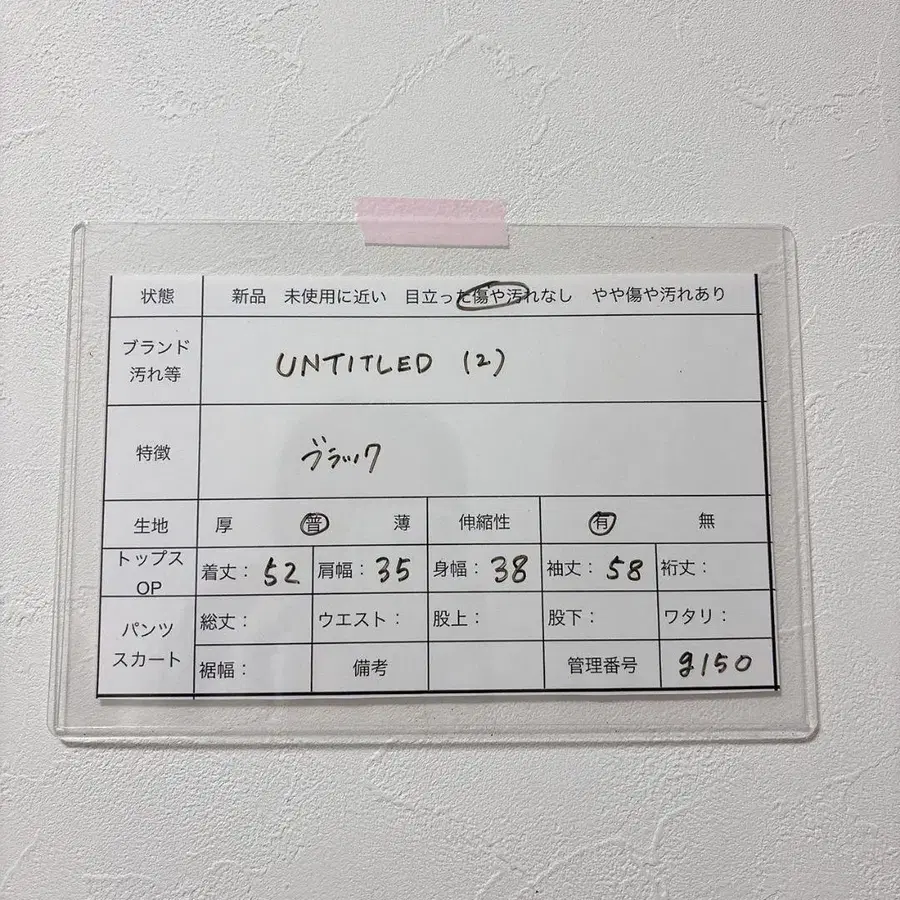 状態 新品 未使用に近い 目立った傷や汚れなし やや傷や汚れあり
ブランド
汚れ等
UNTITLED (2)
特徴 ブラック
生地 厚 普 薄 伸縮性 有 無
トップス
OP
着丈: 52 肩幅: 35 身幅: 38 袖丈: 58 裄丈:
パンツ
スカート
総丈: ウエスト: 股上: 股下: ワタリ:
裾幅: 備考 管理番号 g150